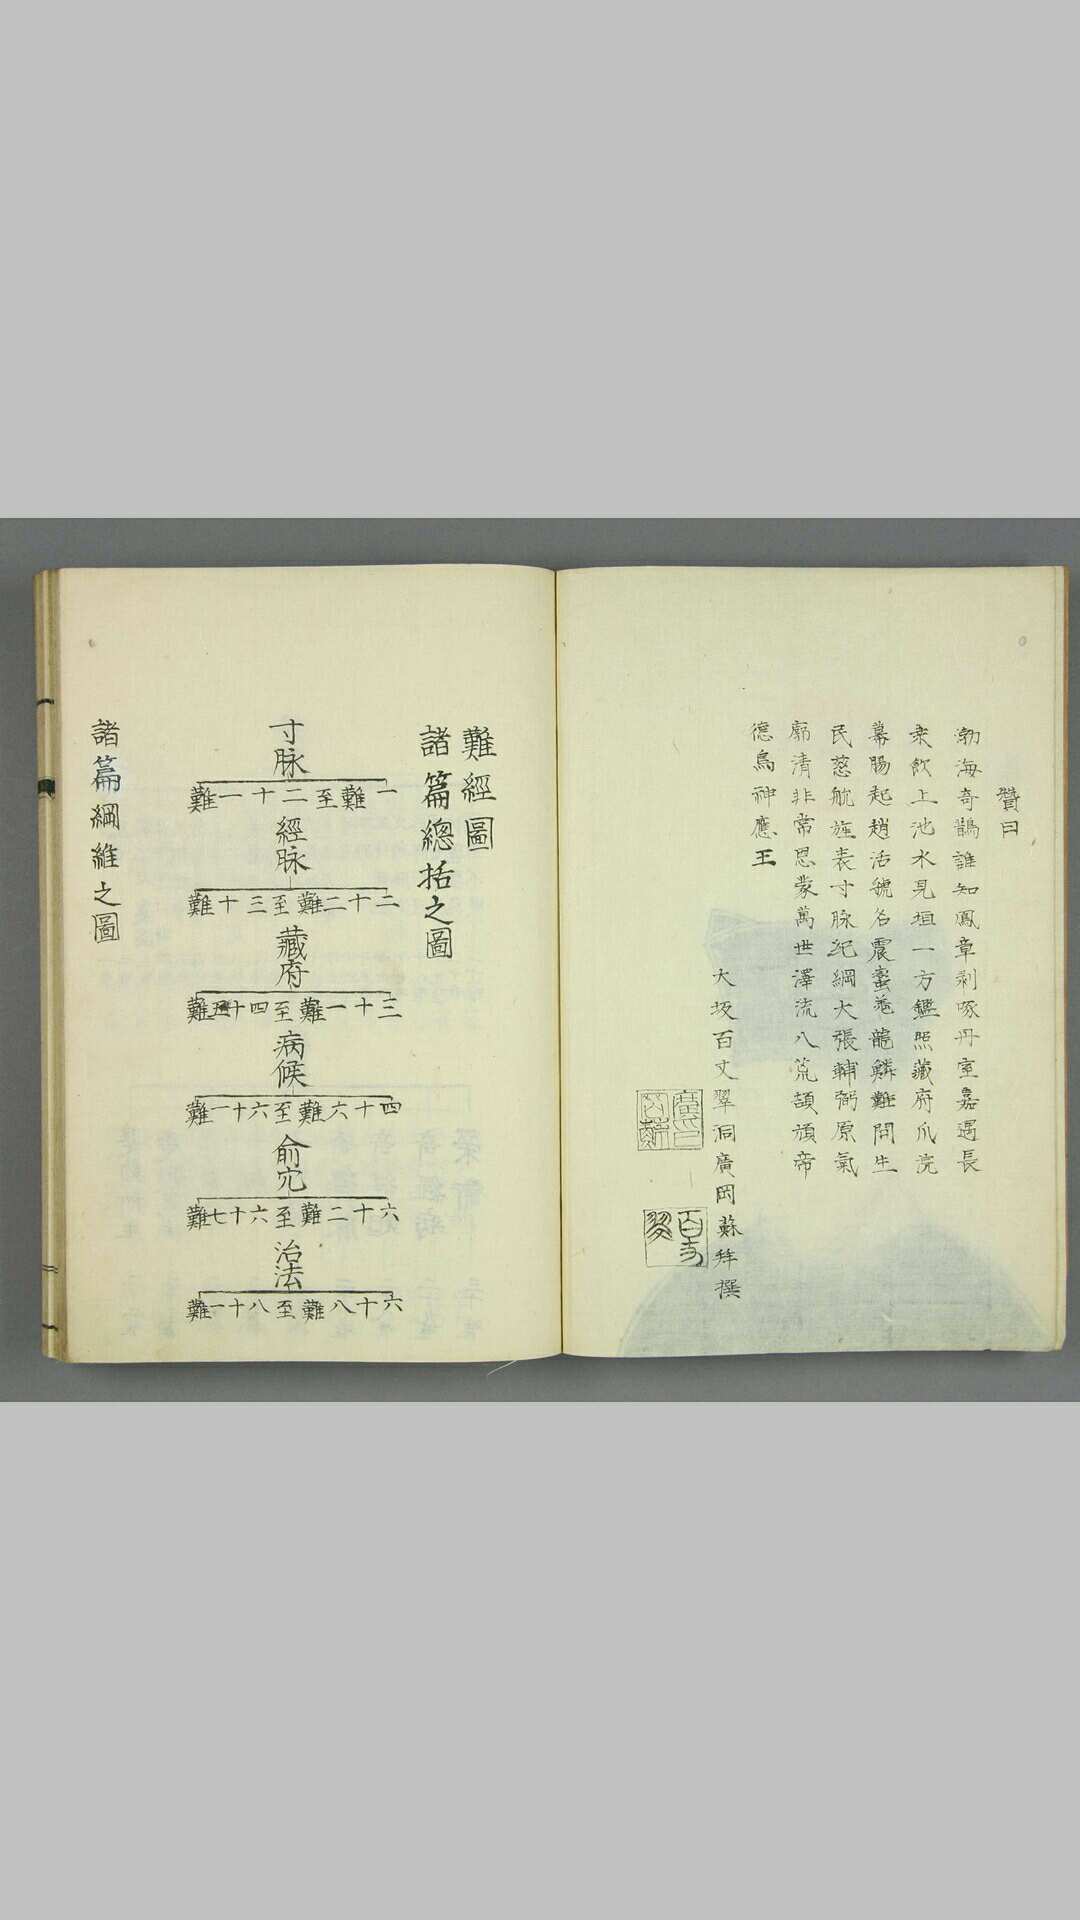 贊曰
渤海奇鵲誰知鳳章剥啄丹室嘉遇長
桒飲上池水見垣一方鑑照藏府爪浣
幕腸起趙活虢名震蠻 龍鱗難問生
民慈航旌表寸脉紀綱大張輔弼原氣
廓清非常恩蒙萬世澤流八荒頡頏帝
德烏神應王
大坂百丈翠洞廣岡蘇 撰
難經圖
諸篇總括之圖
寸脉
一難至二十一難
經脉
二十二難至三十難
藏府
三十一難至四十五難
病候
四十六難至六十一難
俞穴
六十二難至六十七難
治法
六十八難至八十一難
諸篇綱維之圖